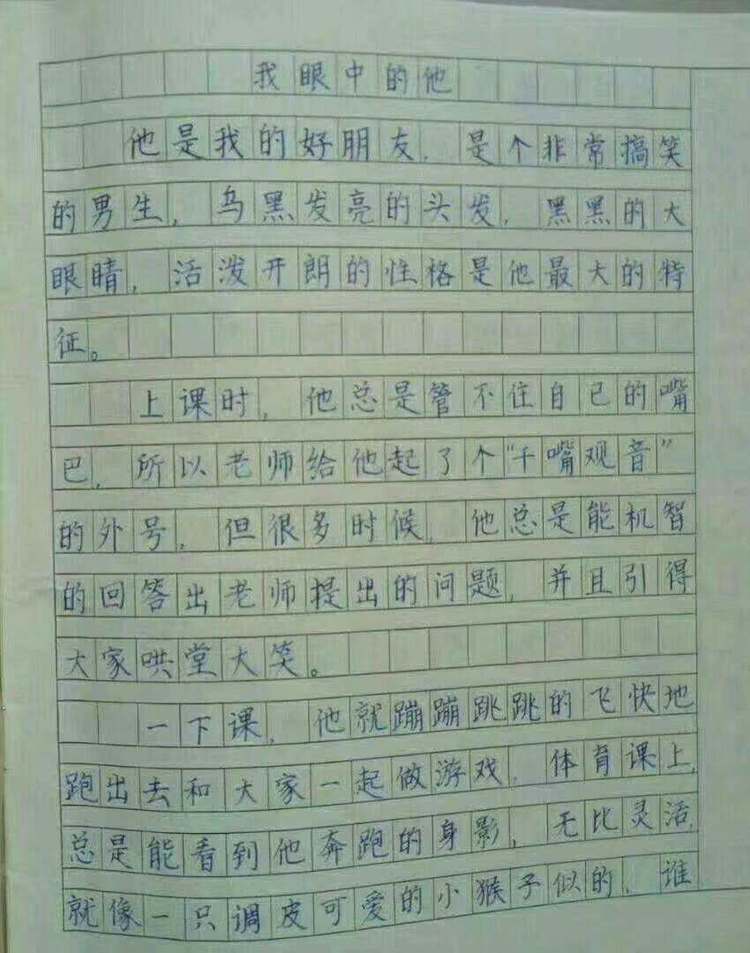 我眼中的他
他是我的好朋友，是个非常搞笑
的男生，乌黑发亮的头发，黑黑的大
眼睛，活泼开朗的性格是他最大的特
征。
上课时，他总是管不住自己的嘴
巴，所以老师给他起了个“千嘴观音”
的外号，但很多时候，他总是能机智
的回答出老师提出的问题，并且引得
大家哄堂大笑。
一下课，他就蹦蹦跳跳的飞快地
跑出去和大家一起做游戏，体育课上，
总是能看到他奔跑的身影，无比灵活，
就像一只调皮可爱的小猴子似的，谁